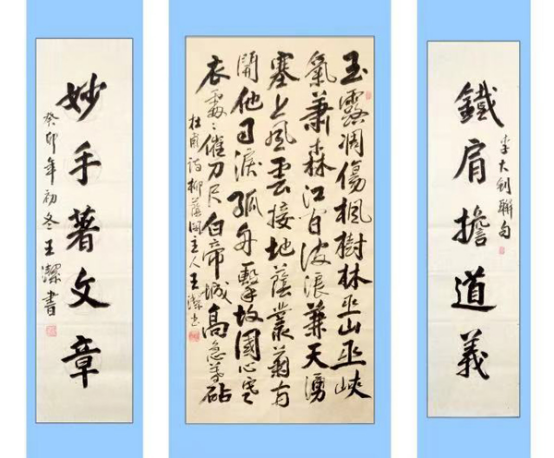 鐵肩擔道義
李大釗聯句
玉露凋傷楓樹林巫山巫峽
氣蕭森江間波浪兼天湧
塞上風雲接地蔭叢菊兩
開他日淚孤舟一繫故園心寒
衣處々催刀尺白帝城高急暮砧
杜甫詩柳蔭主人王潔書
妙手著文章
癸卯年初冬王潔書